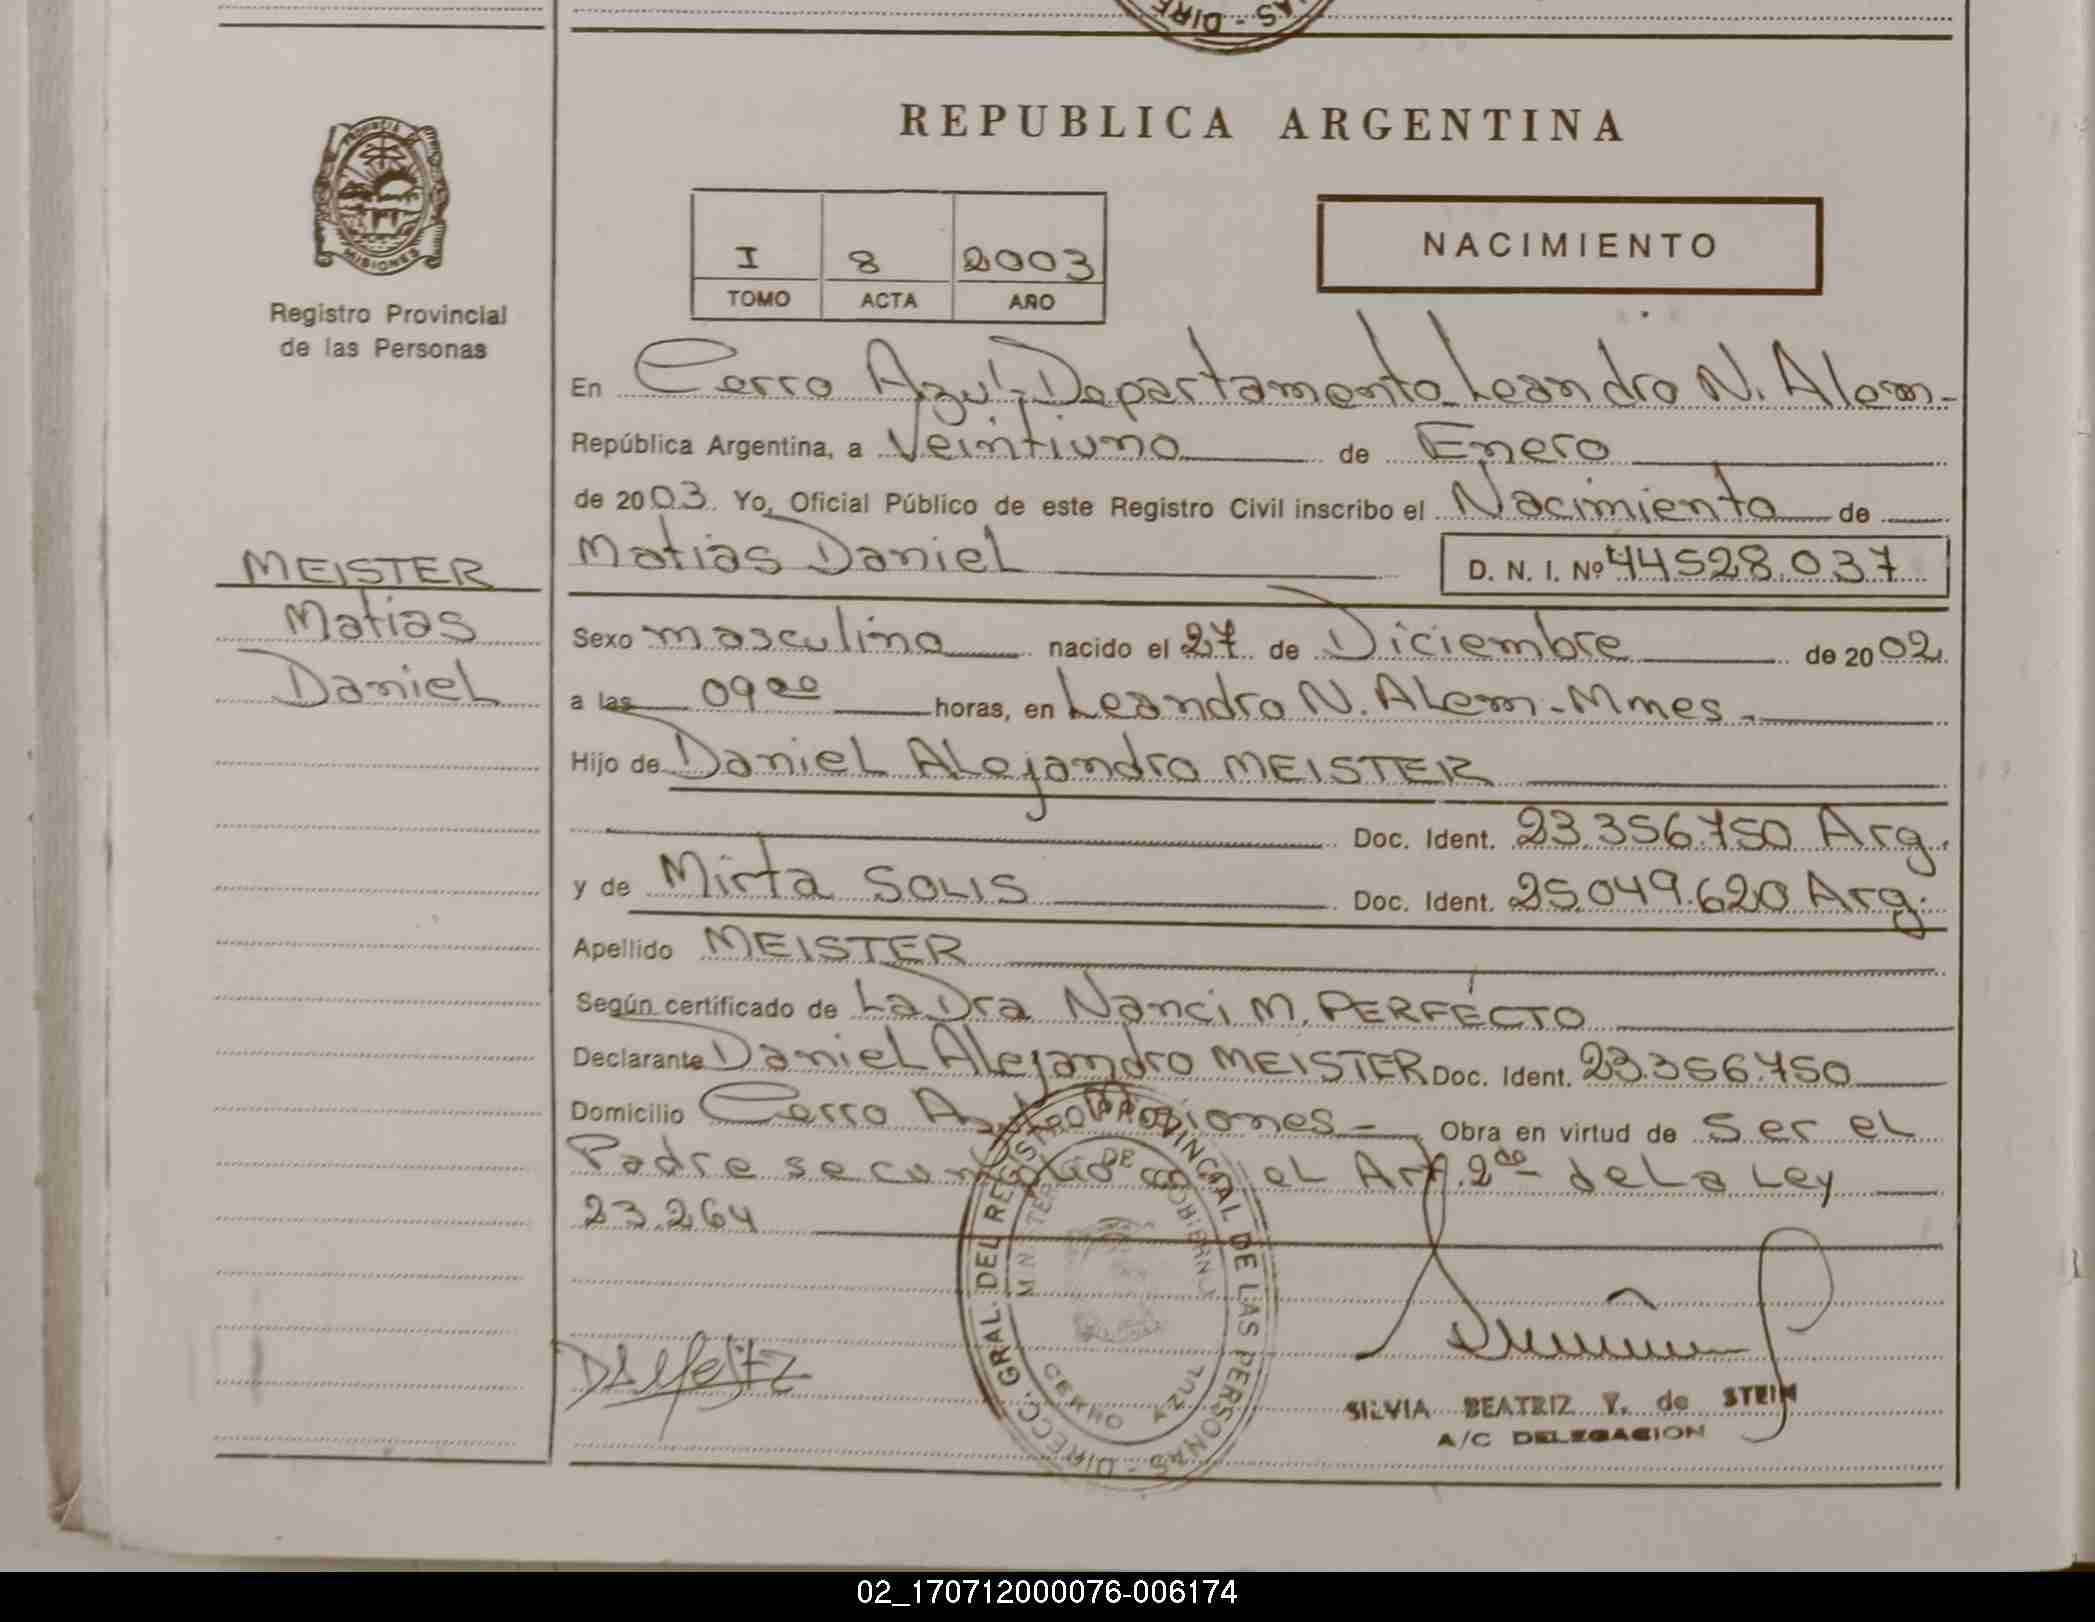 DIRE - AS
REPUBLICA ARGENTINA
PROVINCIA DE
MISIONES
Registro Provincial
de las Personas
I 8 2003
TOMO ACTA AÑO
NACIMIENTO
En Cerro Azul, Departamento Leandro N. Alem-
República Argentina, a Veintiuno de Enero
de 2003. Yo, Oficial Público de este Registro Civil inscribo el Nacimiento de
Matias Daniel D. N. I. Nº 44528.037
MEISTER
Matias
Daniel
Sexo masculino nacido el 27 de Diciembre de 2002
a las 09 00 horas, en Leandro N. Alem-Mnes-
Hijo de Daniel Alejandro MEISTER
Doc. Ident. 23.356.750 Arg.
y de Mirta SOLIS Doc. Ident. 25.049.620 Arg.
Apellido MEISTER
Según certificado de La Dra Nanci M. PERFECTO
Declarante Daniel Alejandro MEISTER Doc. Ident. 23.356.750
Domicilio Cerro Azul Misiones- Obra en virtud de Ser el
Padre se cumplió con el Art. 2do de La Ley
23.264
DIRECC. GRAL. DEL REGISTRO PROVINCIAL DE LAS PERSONAS
MINISTERIO DE GOBIERNO
CERRO AZUL
SILVIA BEATRIZ Y. de STEIN
A/C DELEGACION
02_170712000076-006174